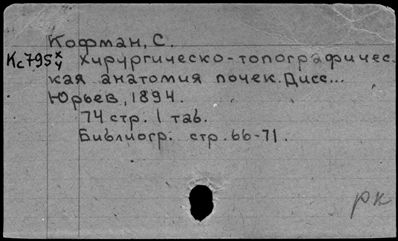 Кофман, С.
Кс795 х/4 Хирургическо-топографичес-
кая анатомия почек. Дисс...
Юрьев, 1894.
74 стр. 1 таб.
Библиогр. стр. 66-71.
рк